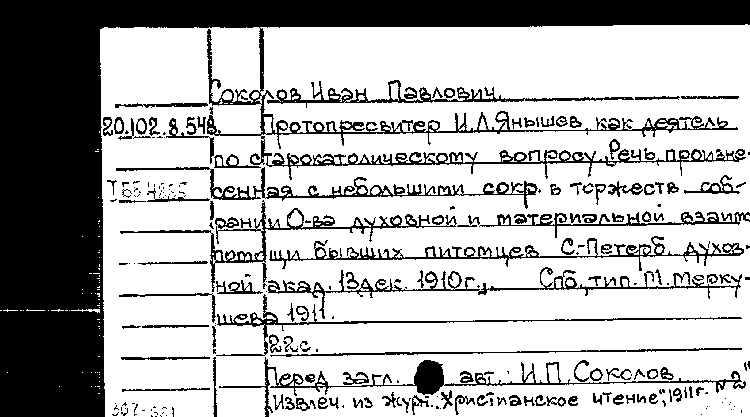 Соколов, Иван Павлович.
20.102.8.548. Протопресвитер И.Л.Янышев, как деятель
по старокатолическому вопросу. Речь, произне-
сенная с небольшими сокр. в торжеств. соб-
рании О-ва духовной и материальной взаимо
помощи бывших питомцев С.-Петерб. духов-
ной акад. 13 дек. 1910г., Спб., тип. М. Мерку-
шева, 1911.
22с.
Перед загл. авт.: И.П. Соколов.
"Извлеч. из журн. "Христианское чтение", 1911г. №2"